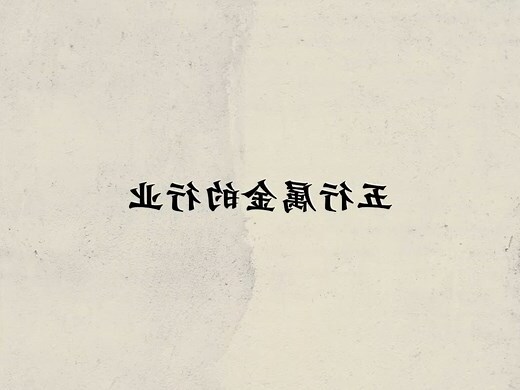 五行属金的行业